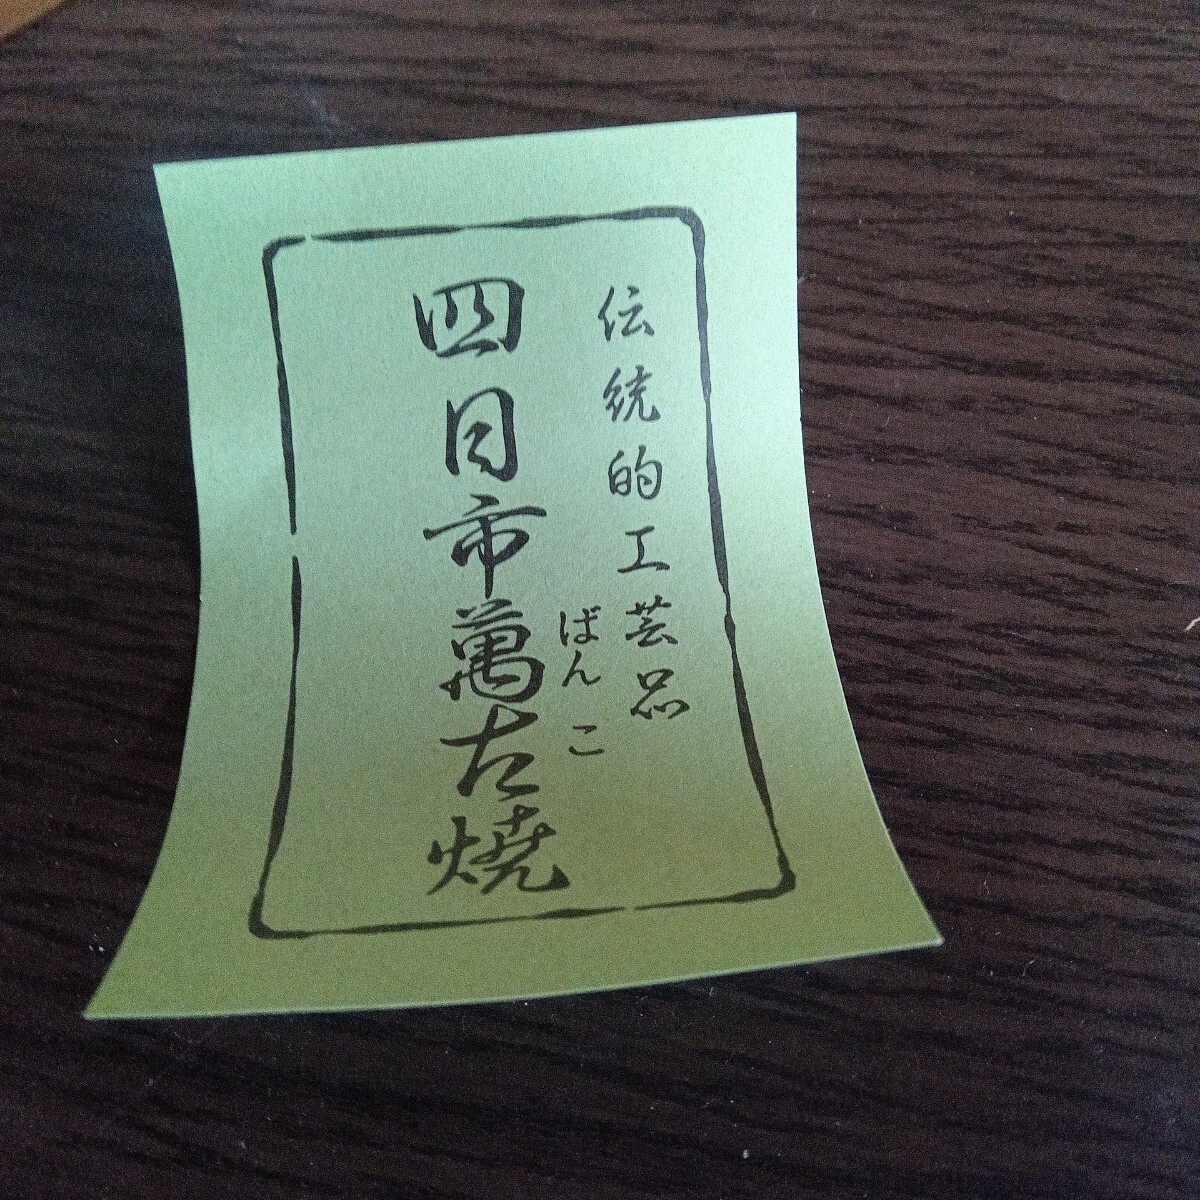 伝統的工芸品
四日市萬古焼
ばんこ